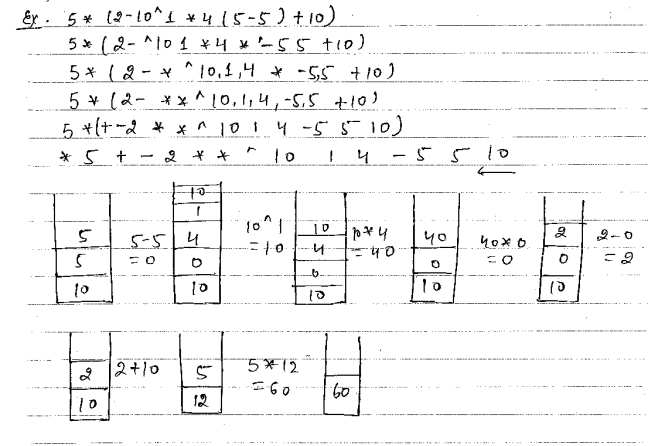 Ex. 5 * (2-10^1 * 4 (5-5) + 10)
5 * (2- ^10 1 * 4 * -5 5 +10)
5 * (2 - * ^ 10,1,4 * -5,5 +10)
5 * (2- **^10,1,4,-5,5 +10)
5 *(+-2 * * ^ 10 1 4 -5 5 10)
* 5 + - 2 * * ^ 10 1 4 - 5 5 10
5
5
10
5-5
= 0
10
1
4
0
10
10^1
= 10
10
4
0
10
10*4
= 40
40
0
10
40*0
= 0
2
0
10
2-0
= 2
2
10
2+10
5
12
5*12
= 60
60